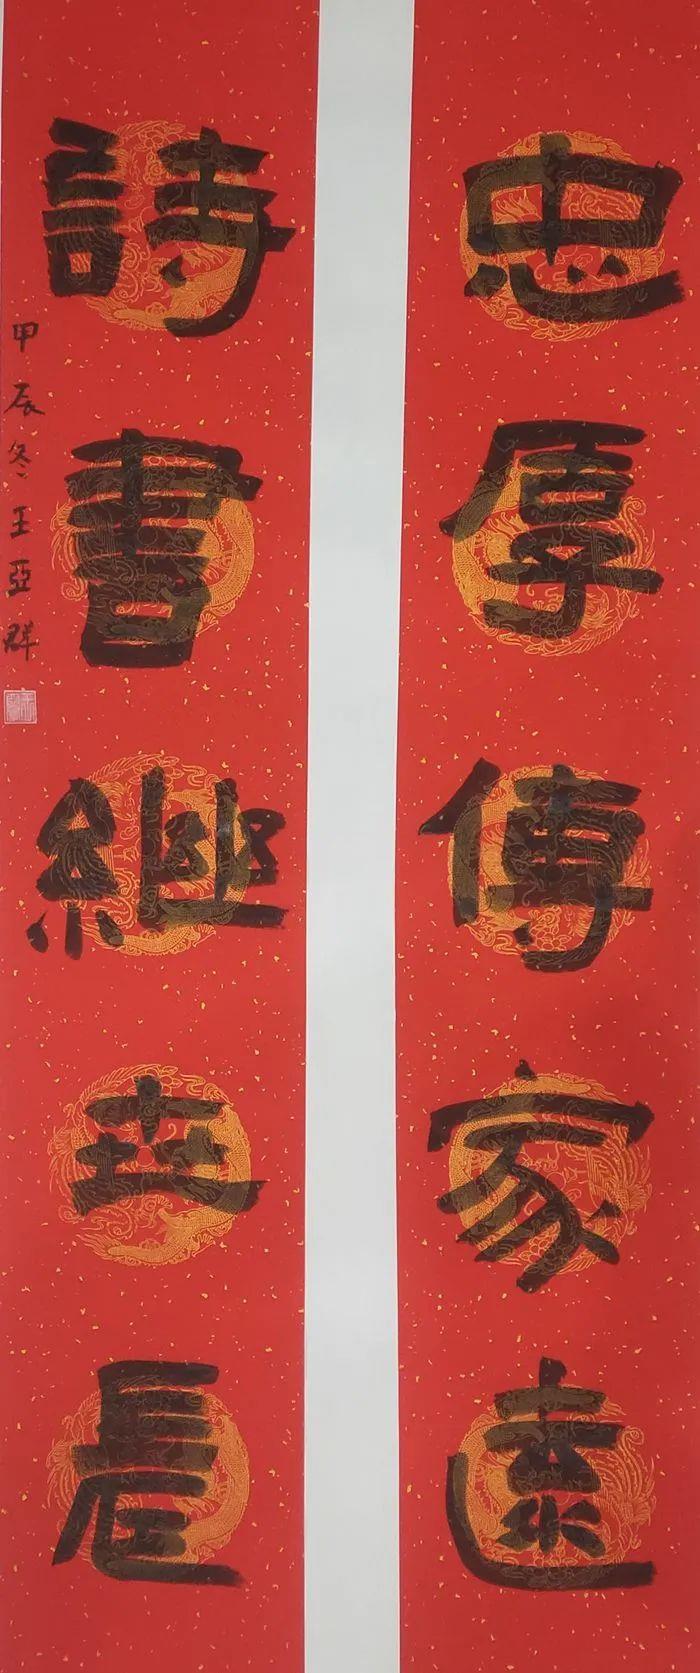 忠厚傳家遠
詩書繼世長
甲辰冬王亞群